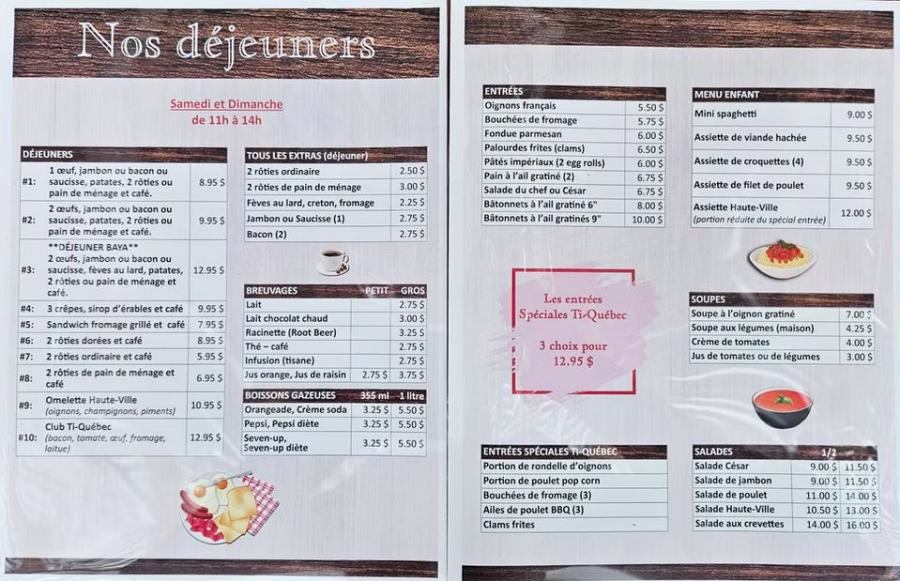 Nos déjeuners
Samedi et Dimanche
de 11h à 14h
DÉJEUNERS
#1: 1 œuf, jambon ou bacon ou
saucisse, patates, 2 rôties ou
pain de ménage et café. 8.95 $
#2: 2 œufs, jambon ou bacon ou
saucisse, patates, 2 rôties ou
pain de ménage et café. 9.95 $
**DÉJEUNER BAYA**
#3: 2 œufs, jambon ou bacon ou
saucisse, fèves au lard, patates, 12.95 $
2 rôties ou pain de ménage et
café.
#4: 3 crêpes, sirop d'érables et café 9.95 $
#5: Sandwich fromage grillé et café 7.95 $
#6: 2 rôties dorées et café 8.95 $
#7: 2 rôties ordinaire et café 5.95 $
#8: 2 rôties de pain de ménage et
café 6.95 $
#9: Omelette Haute-Ville 10.95 $
(oignons, champignons, piments)
#10: Club Ti-Québec
(bacon, tomate, œuf, fromage, 12.95 $
laitue)
TOUS LES EXTRAS (déjeuner)
2 rôties ordinaire 2.50 $
2 rôties de pain de ménage 3.00 $
Fèves au lard, creton, fromage 2.25 $
Jambon ou Saucisse (1) 2.75 $
Bacon (2) 2.75 $
BREUVAGES PETIT GROS
Lait 2.75 $
Lait chocolat chaud 3.00 $
Racinette (Root Beer) 3.25 $
Thé – café 2.75 $
Infusion (tisane) 2.75 $
Jus orange, Jus de raisin 2.75 $ 3.75 $
BOISSONS GAZEUSES 355 ml 1 litre
Orangeade, Crème soda 3.25 $ 5.50 $
Pepsi, Pepsi diète 3.25 $ 5.50 $
Seven-up,
Seven-up diète 3.25 $ 5.50 $
ENTRÉES
Oignons français 5.50 $
Bouchées de fromage 5.75 $
Fondue parmesan 6.00 $
Palourdes frites (clams) 6.50 $
Pâtés impériaux (2 egg rolls) 6.00 $
Pain à l'ail gratiné (2) 6.75 $
Salade du chef ou César 6.75 $
Bâtonnets à l'ail gratiné 6" 8.00 $
Bâtonnets à l'ail gratinés 9" 10.00 $
Les entrées
Spéciales Ti-Québec
3 choix pour
12.95 $
ENTRÉES SPÉCIALES TI-QUÉBEC
Portion de rondelle d'oignons
Portion de poulet pop corn
Bouchées de fromage (3)
Ailes de poulet BBQ (3)
Clams frites
MENU ENFANT
Mini spaghetti 9.00 $
Assiette de viande hachée 9.50 $
Assiette de croquettes (4) 9.50 $
Assiette de filet de poulet 9.50 $
Assiette Haute-Ville 12.00 $
(portion réduite du spécial entrée)
SOUPES
Soupe à l'oignon gratiné 7.00 $
Soupe aux légumes (maison) 4.25 $
Crème de tomates 4.00 $
Jus de tomates ou de légumes 3.00 $
SALADES 1/2
Salade César 9.00 $ 11.50 $
Salade de jambon 9.00 $ 11.50 $
Salade de poulet 11.00 $ 14.00 $
Salade Haute-Ville 10.50 $ 13.00 $
Salade aux crevettes 14.00 $ 16.00 $